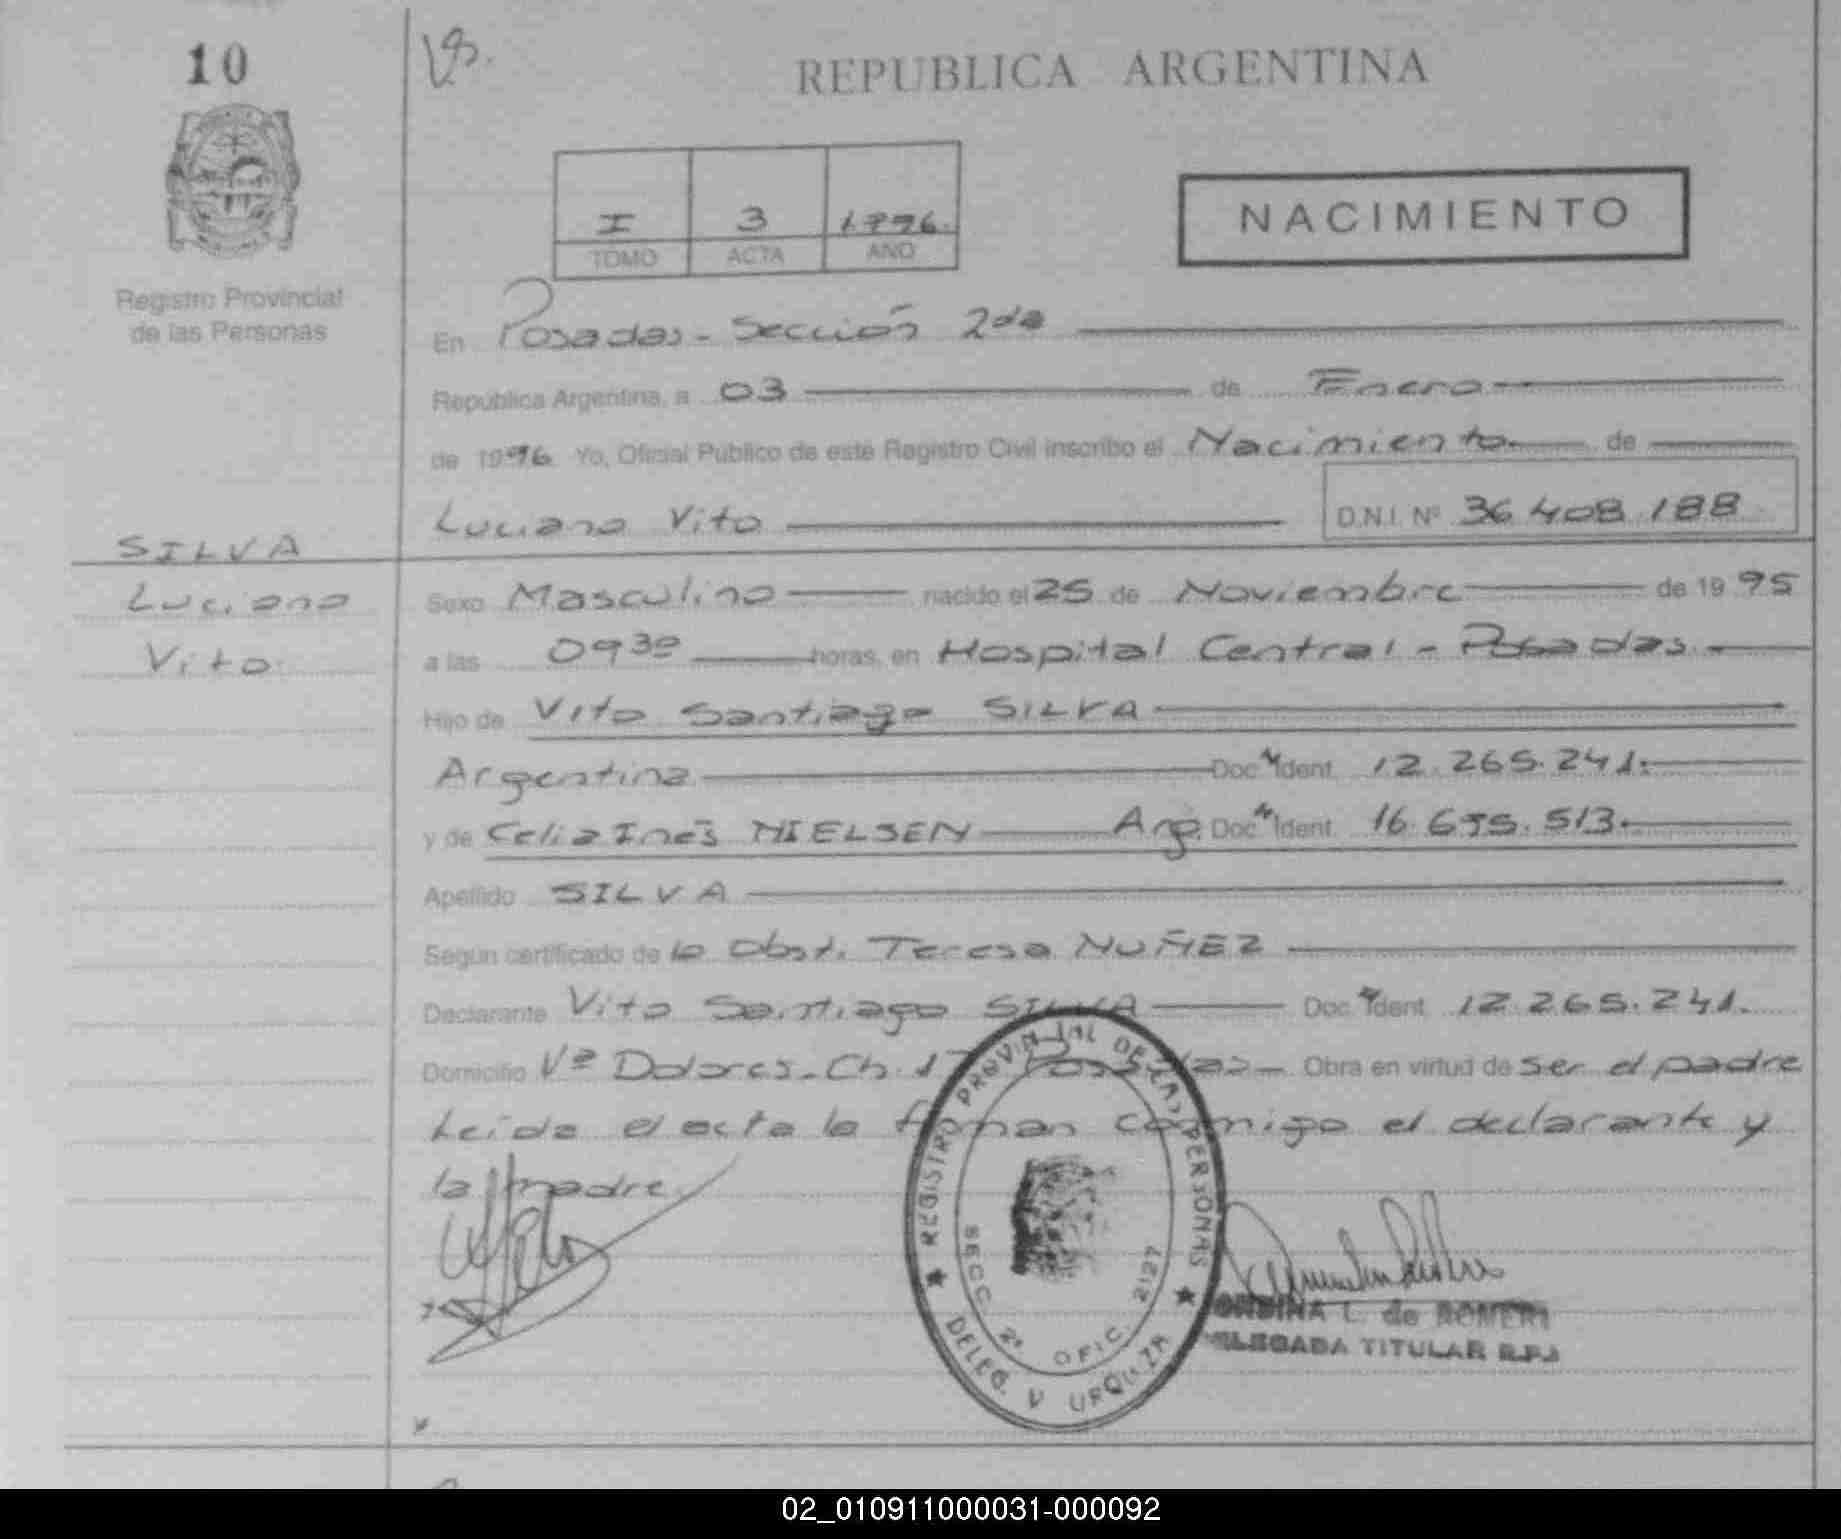 10
REPUBLICA ARGENTINA
I 3 1.996.
TOMO ACTA AÑO
NACIMIENTO
Registro Provincial
de las Personas
En Posadas - Sección 2da
República Argentina, a 03 de Enero
de 1996. Yo, Oficial Público de este Registro Civil inscribo el Nacimiento de
Luciano Vito D.N.I. Nº 36.408.188
SILVA
Luciano
Vito.
Sexo Masculino nacido el 25 de Noviembre de 1995
a las 09³⁰ horas, en Hospital Central - Posadas.
Hijo de Vito Santiago SILVA
Argentina Doc. Ident. 12.265.241.
y de Celia Inés NIELSEN Arg. Doc. Ident. 16.695.513.
Apellido SILVA
Según certificado de la Obst. Teresa NUÑEZ
Declarante Vito Santiago SILVA Doc. Ident. 12.265.241.
Domicilio Vª Dolores - Ch. Posadas - Obra en virtud de ser el padre
Leída el acta la firman conmigo el declarante y
la madre.
REGISTRO PROVINCIAL DE LAS PERSONAS
SECC. 2ª OFIC. 2127
DELEG. V URQUIZA
L. de ROMERO
DELEGADA TITULAR R.P.
02_010911000031-000092